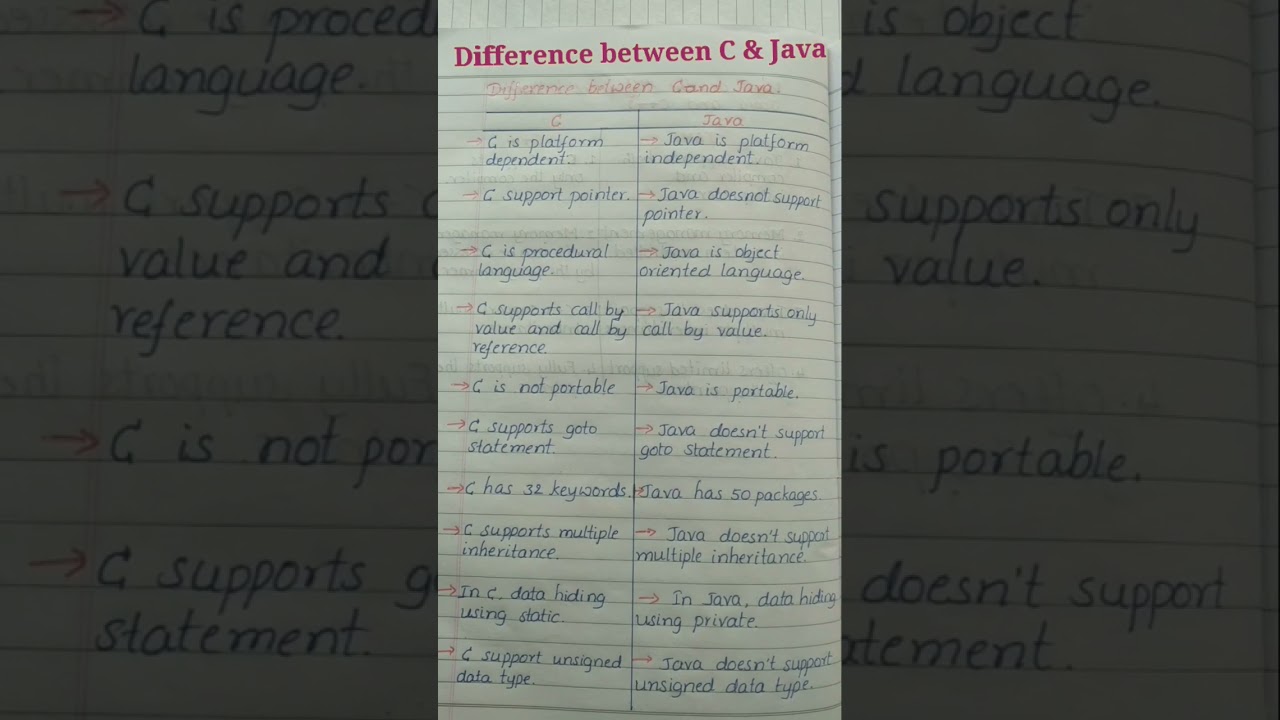 Difference between C & Java
Difference between C and Java.
C
Java
→ C is platform
dependent.
→ Java is platform
independent.
→ C support pointer.
→ Java doesnot support
pointer.
→ C is procedural
language.
→ Java is object
oriented language.
→ C supports call by
value and call by
reference.
→ Java supports only
call by value.
→ C is not portable
→ Java is portable.
→ C supports goto
statement.
→ Java doesn't support
goto statement.
→ C has 32 keywords.
→ Java has 50 packages.
→ C supports multiple
inheritance.
→ Java doesn't support
multiple inheritance.
→ In C, data hiding
using static.
→ In Java, data hiding
using private.
→ C support unsigned
data type.
→ Java doesn't support
unsigned data type.
C is proced
language.
→ C supports
value and
reference.
→ C is not por
→ C supports g
statement.
is object
d language.
supports only
value.
is portable.
doesn't support
atement.